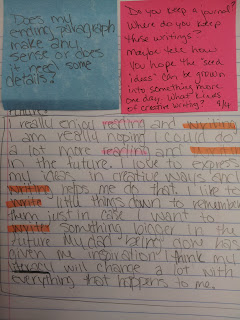 Does my
ending paragraph
make any
sense or does
it need some
details?
Do you keep a journal?
Where do you keep
these writings?
Maybe tell how
you hope the "seed
ideas" can be grown
into something more
one day. What kinds
of creative writing? 9/4
I really enjoy reading and writing
I am really hoping I could
a lot more reading and
in the future. I love to express
my ideas in creative ways and
writing helps me do that. I like to
write little things down to remember
them just in case I want to
write something bigger in the
future. My dad being now has
given me inspiration. I think my
will change a lot with
everything that happens to me.